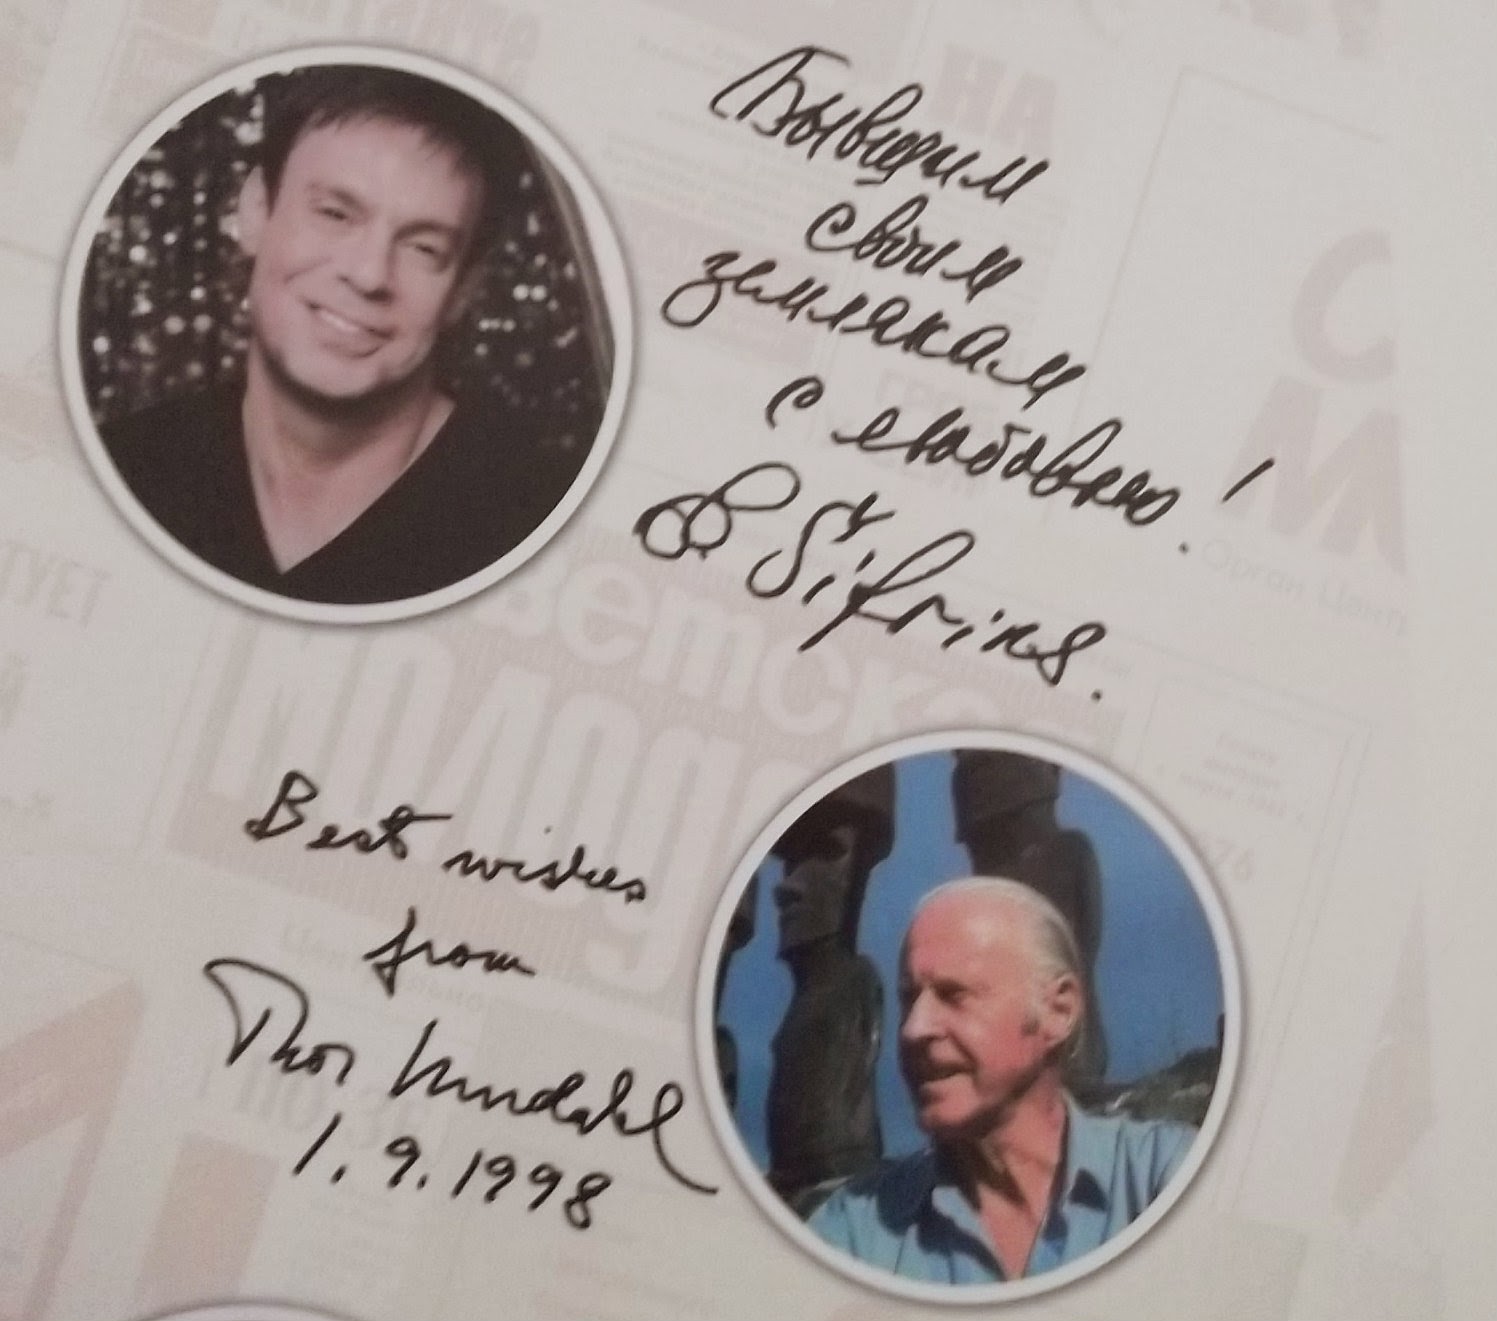 Бывшим
своим
землякам
с любовью!
В Šifrins.
НА
С
М
Орган Цент
ТУЕТ
ветска
молод
Best wishes
from
Thor Heyerdahl
1.9.1998